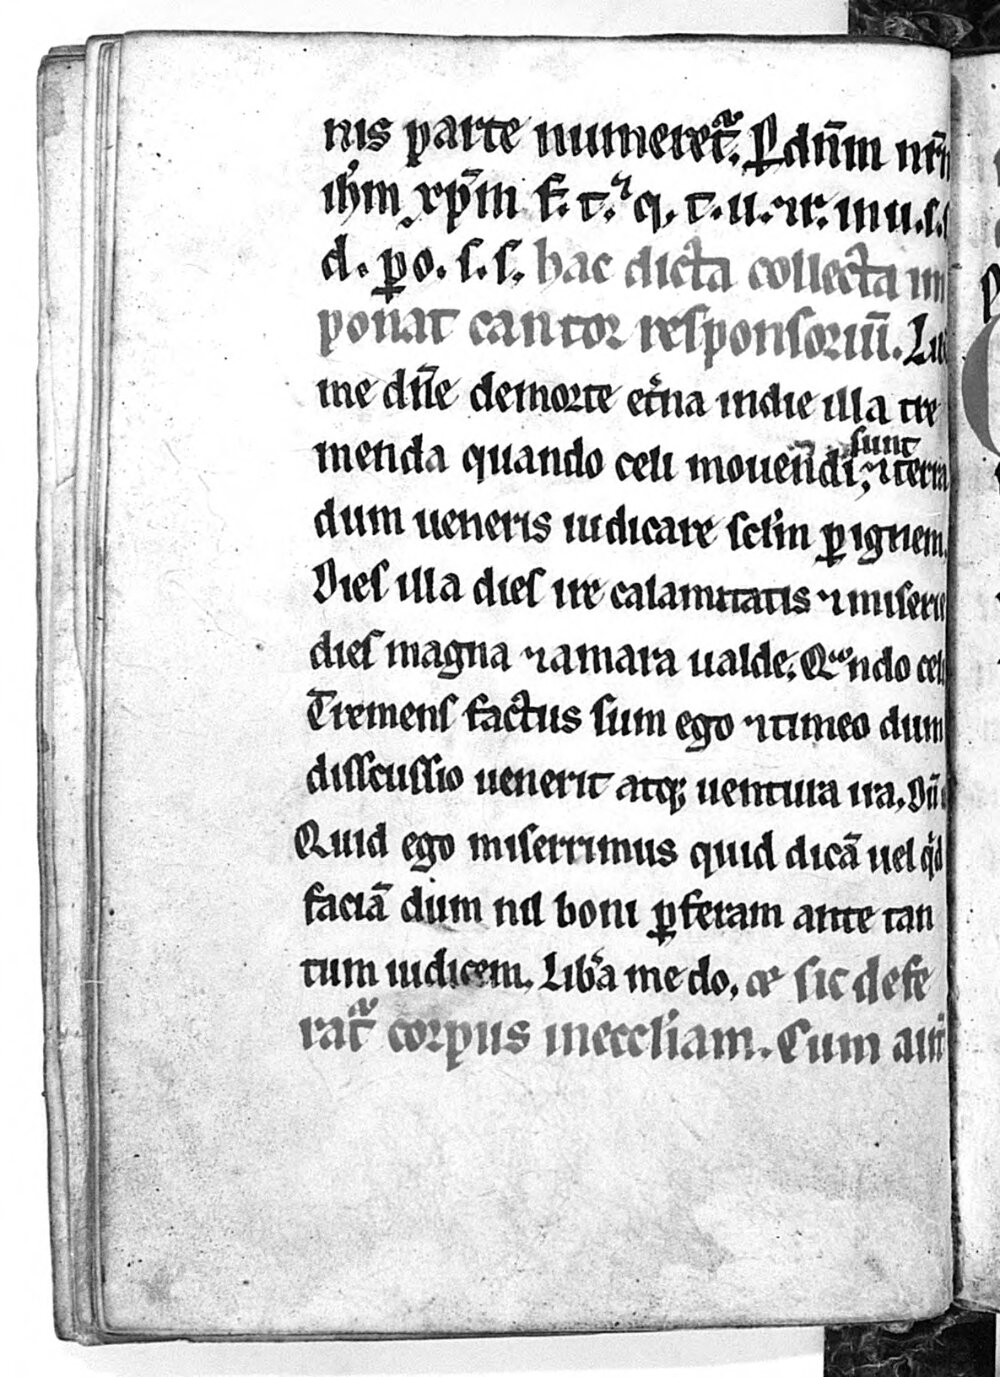 nis parte numeret᷑. P̱ dn̄m nr̄m
ih̓m xp̄m f. t. ⁊ q. t. u. ⁊ r. in u. s. s.
d. p̱ o. s. s. hac dicta collecta im
ponat cantor responsoriū. Lib
me dn̄e de morte et̓na in die illa tre
menda quando celi mouendi sunt ⁊ terra
dum ueneris iudicare sclm̄ p̱ ignem.
Dies illa dies ire calamitatis ⁊ miserie
dies magna ⁊ amara ualde. Qᵃndo celi
Tremens factus sum ego ⁊ timeo dum
discussio uenerit atq; uentura ira. Dū
Quid ego miserrimus quid dicā uel qͥd
faciā dum nil boni p̱feram ante tan
tum iudicem. Lib̓a me do. et sic defe
rat᷑ corpus in eccl̓iam. Cum aut̄